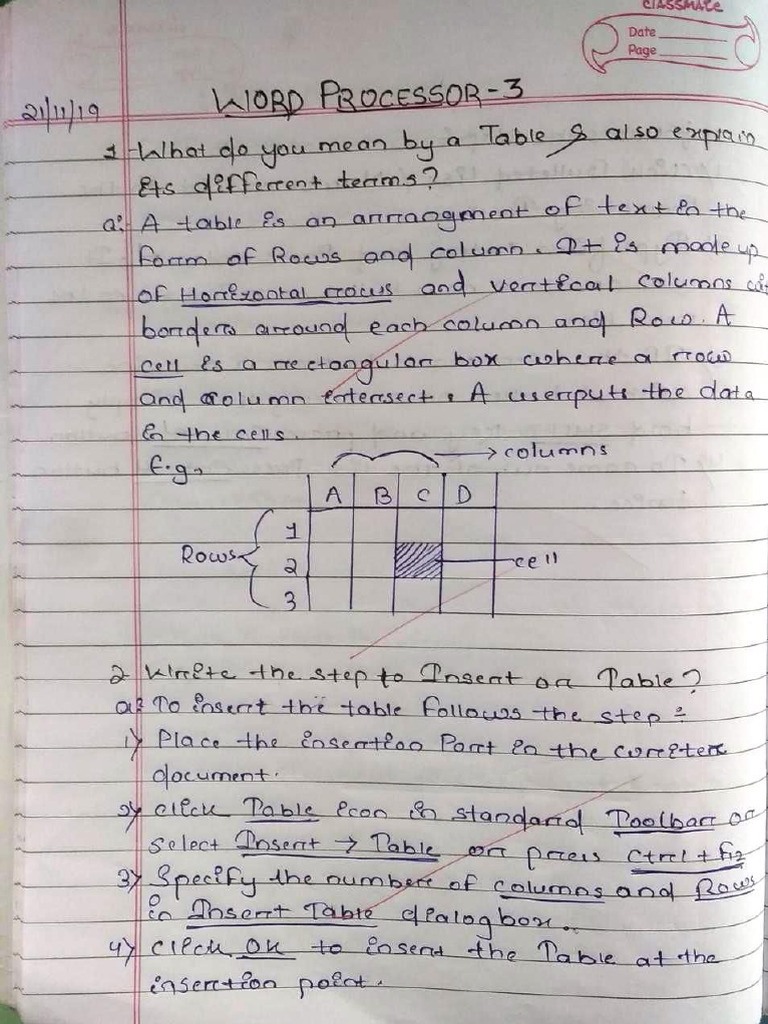 CLASSMATE
Date
Page
21/11/19 WORD PROCESSOR-3
1 What do you mean by a Table & also explain
its different terms?
a: A table is an arrangment of text in the
form of Rows and column. It is made up
of Horizontal rows and vertical columns wit
borders around each column and Row. A
cell is a rectangular box where a row
and column intersect. A user puts the data
in the cells.
E.g,
→ columns
A B C D
1
Rows 2 cell
3
2 Write the step to Insert on Table?
a: To insert the table follows the step :
1) Place the insertion Point in the writer
document.
2) click Table icon in standard Toolbar or
select Insert → Table or press Ctrl + F12
3) Specify the number of columns and Rows
in Insert Table dialogbox.
4) Click OK to insert the Table at the
insertion point.